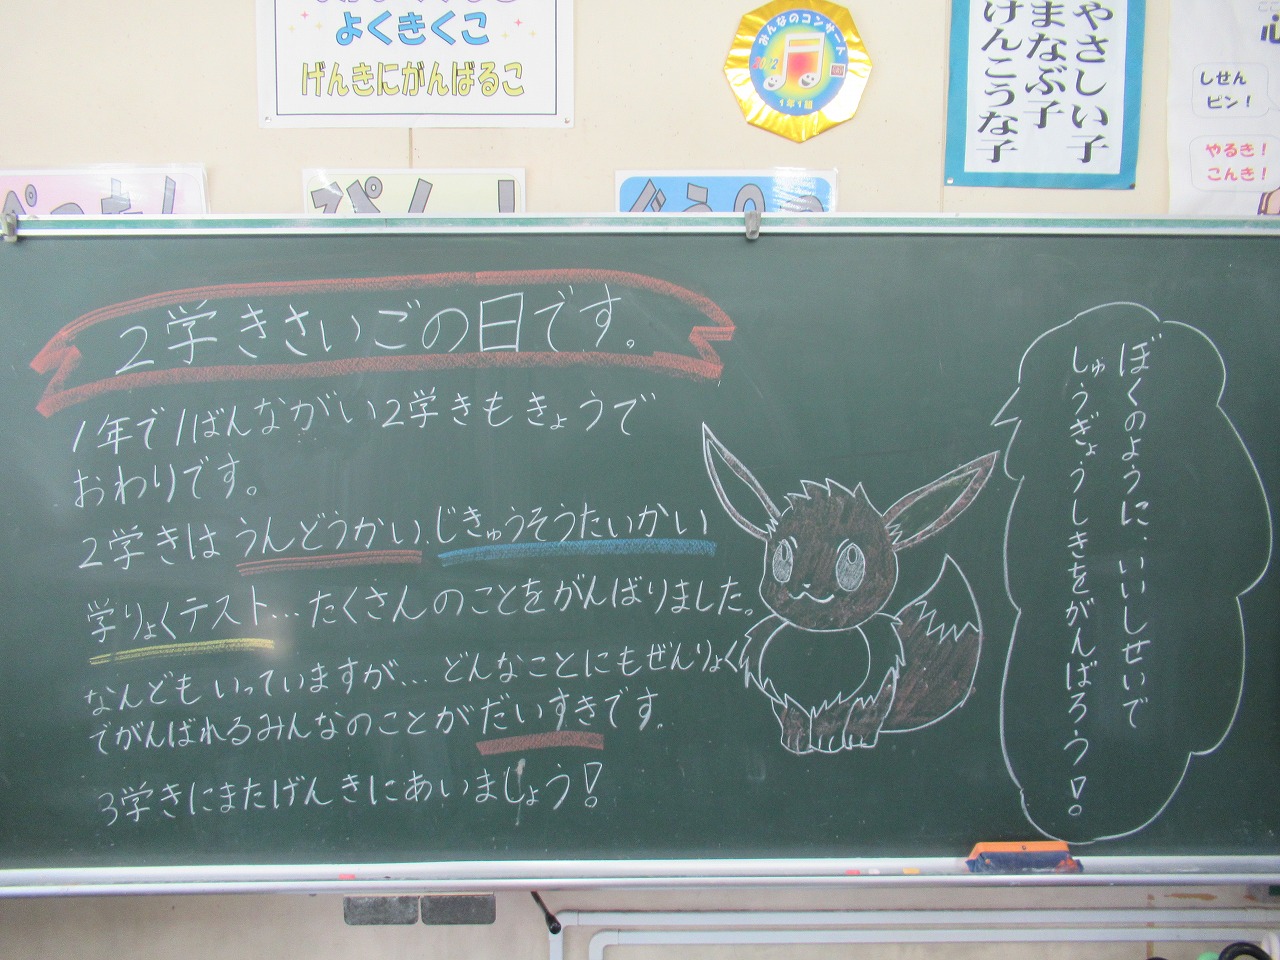 よくきくこ
げんきにがんばるこ
みんなのコンサート
2022
1年1組
やさしい子
まなぶ子
けんこうな子
しせん
ピン！
やるき！
こんき！
2学きさいごの日です。
1年で1ばんながい2学きもきょうで
おわりです。
2学きはうんどうかい、じきゅうそうたいかい
学りょくテスト…たくさんのことをがんばりました。
なんどもいっていますが…どんなことにもぜんりょく
でがんばれるみんなのことがだいすきです。
3学きにまたげんきにあいましょう！
ぼくのように、いいしせいで
しゅうぎょうしきをがんばろう！。